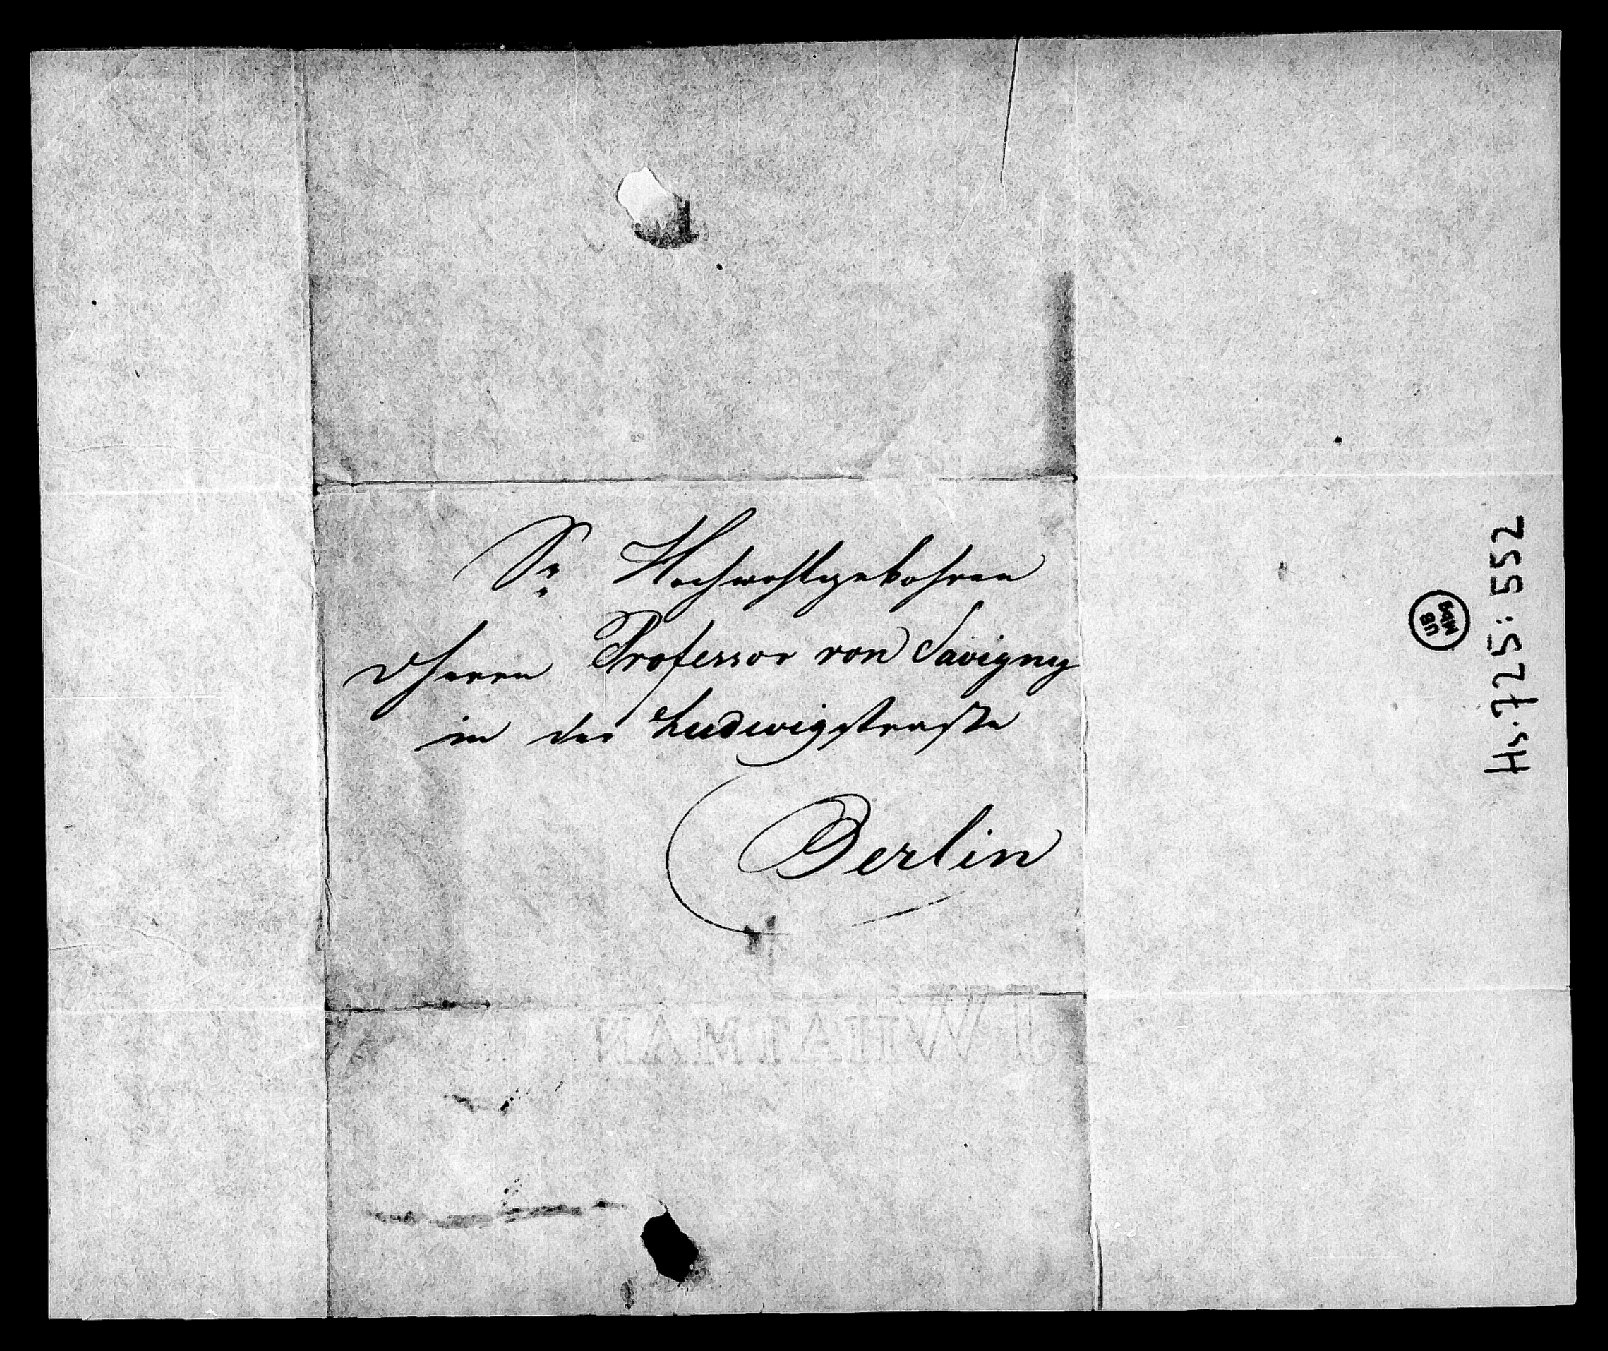 Sr Hochwohlgebohren
d Herrn Professor von Savigny
in der Ludwigstraße
Berlin
J WHATMAN
Hs. 725: 552
UB
Mbg